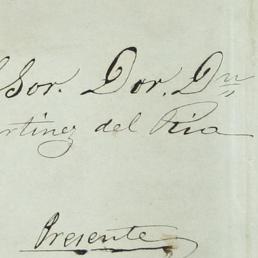 Sor. Dor. Dn
rtinez del Rio
Presente